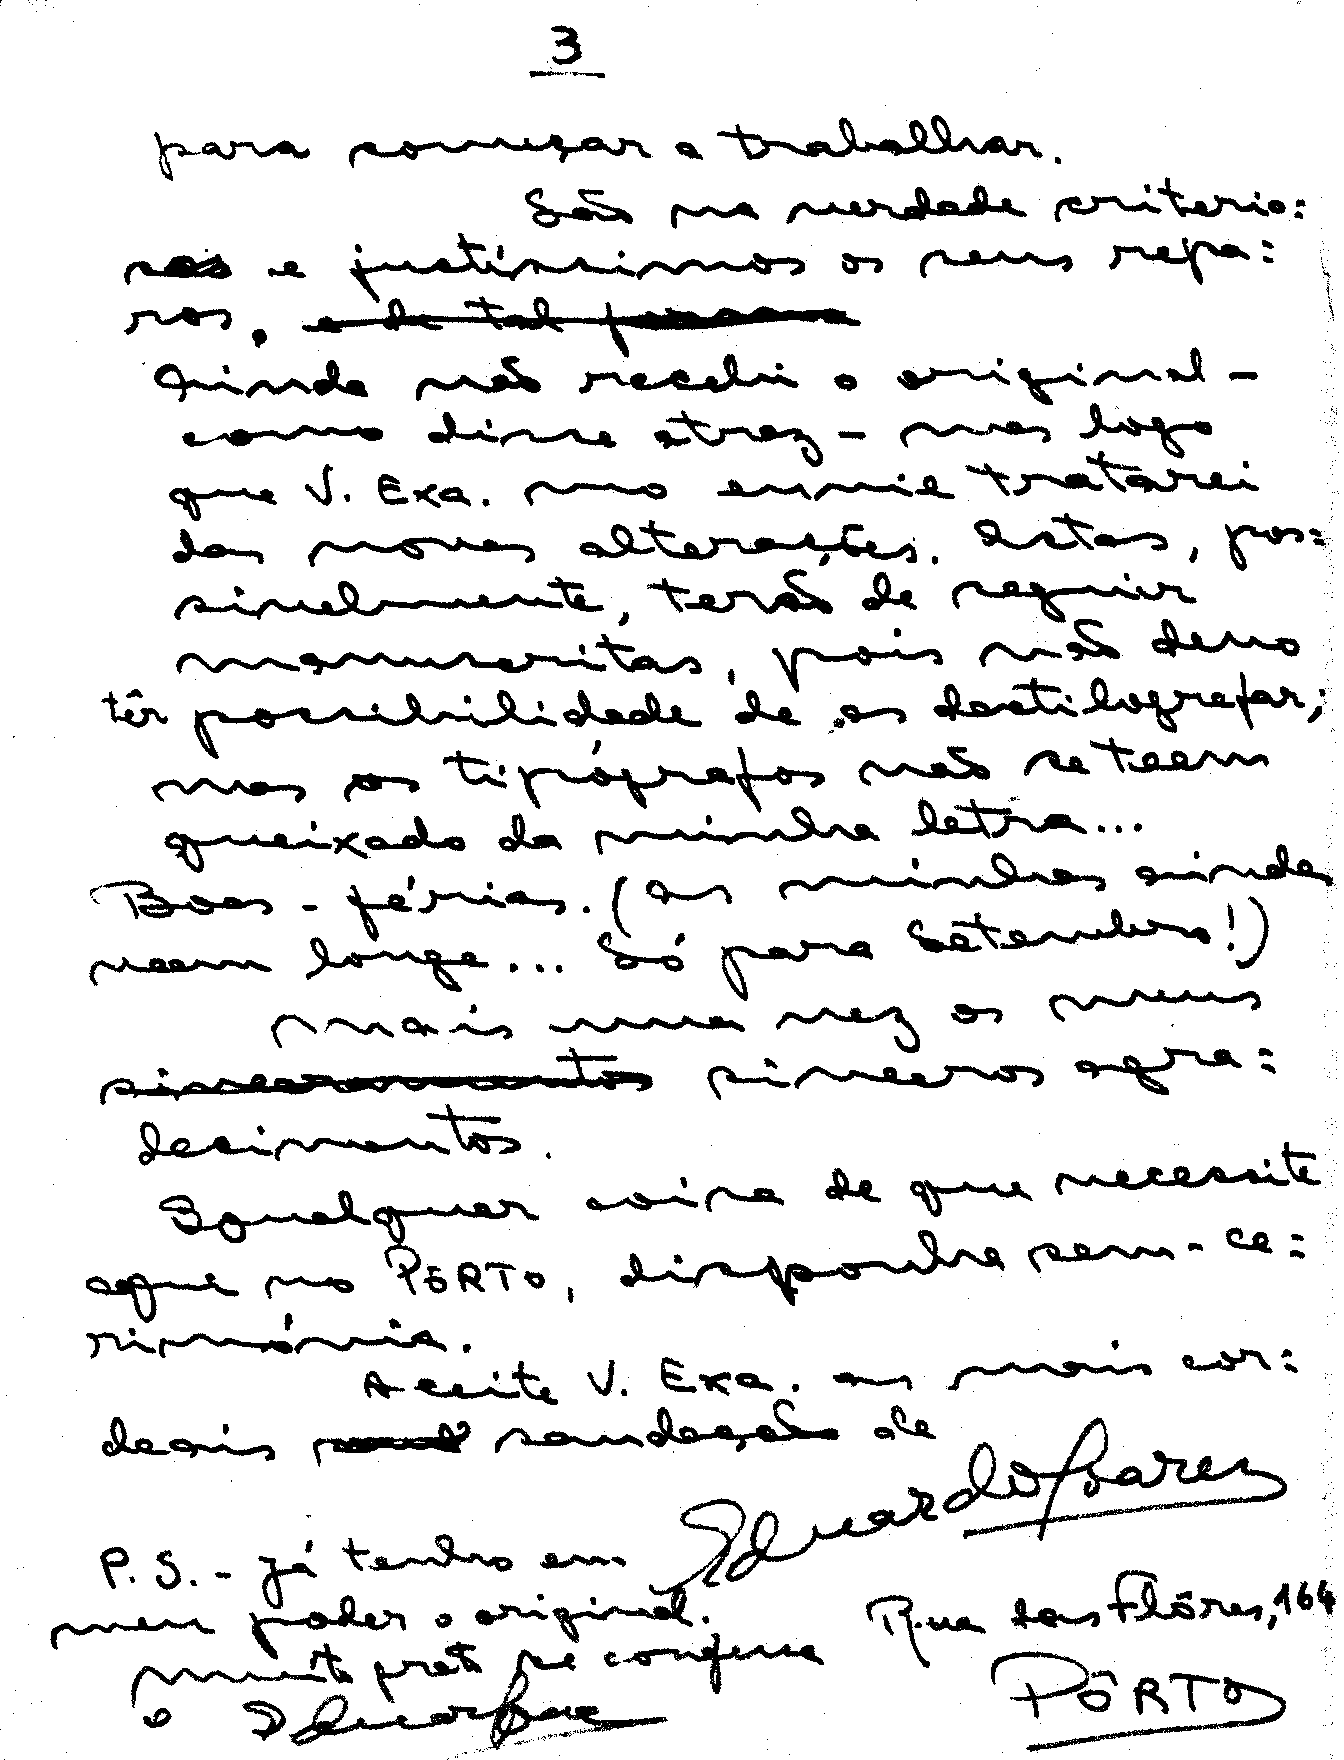 3
para começar a trabalhar.
São na verdade criterio:
sos e justíssimos os seus repa:
ros. e de tal
Ainda não recebi o original -
como disse atrez - mas logo
que V. Exa. mo envie tratarei
das novas alterações. Estas, pos:
sivelmente, terão de seguir
manuscritas, pois não devo
têr possibilidade de as dactilografar;
mas os tipógrafos não se teem
queixado da minha letra...
Boas-férias. (As minhas ainda
veem longe... Só para Setembro!)
Mais uma vez os meus
sinceros agra:
decimentos.
E qualquer coisa de que necessite
aqui no PÔRTO, disponha sem-ce:
rimónia.
Aceite V. Exa. as mais cor:
deais saudações de
Eduardo Soarez
P.S. - Já tenho em
meu poder o original.
Rua das Flôres, 164
muito grato se confessa
PÔRTO
o Eduardo